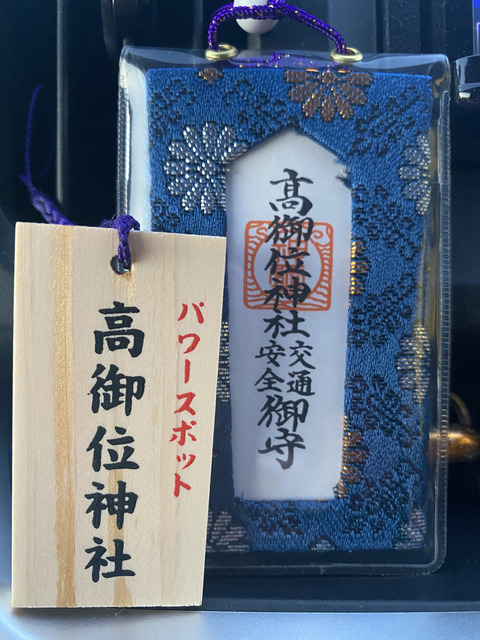 パワースポット
高御位神社
髙御位神社
交通
安全
御守